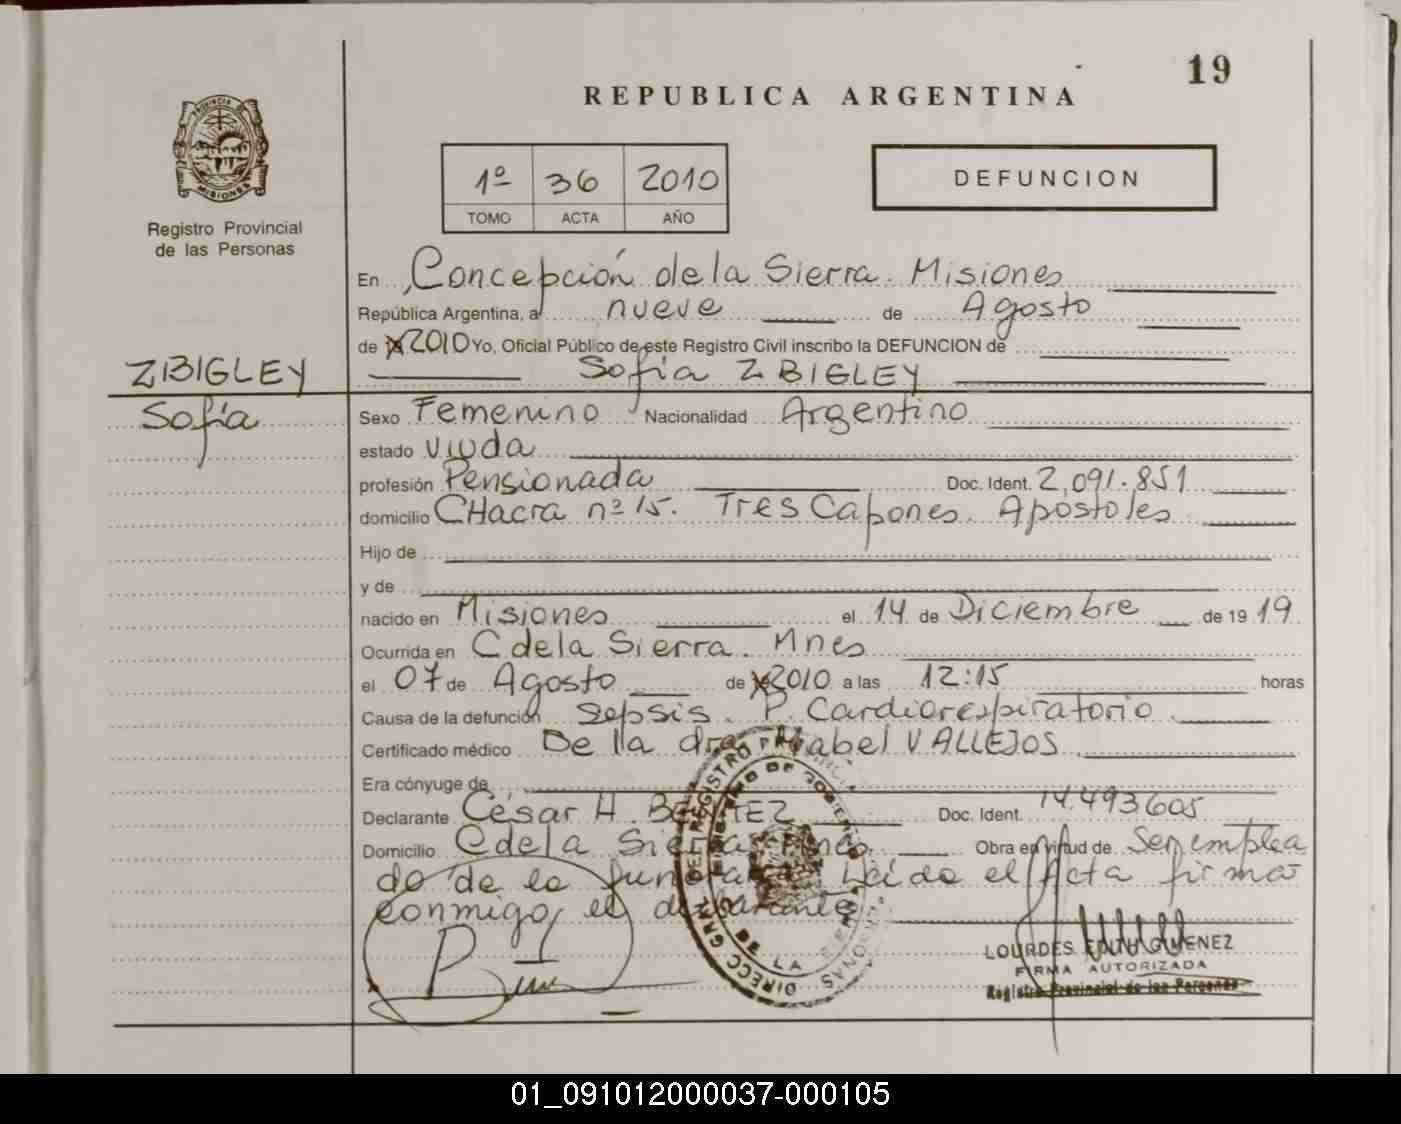 19
REPUBLICA ARGENTINA
PROVINCIA DE MISIONES
Registro Provincial
de las Personas
1º 36 2010
TOMO ACTA AÑO
DEFUNCION
En Concepción de la Sierra. Misiones
República Argentina, a nueve de Agosto
de 2010 Yo, Oficial Público de este Registro Civil inscribo la DEFUNCION de
ZBIGLEY Sofía ZBIGLEY
Sofía
Sexo Femenino Nacionalidad Argentino
estado Viuda
profesión Pensionada Doc. Ident. 2,091.851
domicilio CHacra nº 15. Tres Capones. Apóstoles
Hijo de
y de
nacido en Misiones el 14 de Diciembre de 19 19
Ocurrida en C de la Sierra. Mnes
el 07 de Agosto de 2010 a las 12:15 horas
Causa de la defunción Sepsis. P. Cardiorespiratorio
Certificado médico De la dra Mabel VALLEJOS
Era cónyuge de
Declarante César H. BENITEZ Doc. Ident. 14.493605
Domicilio C de la Sierra Mnes. Obra en virtud de Ser emplea
do de la funeraria Leída el Acta firma
conmigo, el declarante
LOURDES EDITH GIMENEZ
FIRMA AUTORIZADA
Registro Provincial de las Personas
01_091012000037-000105